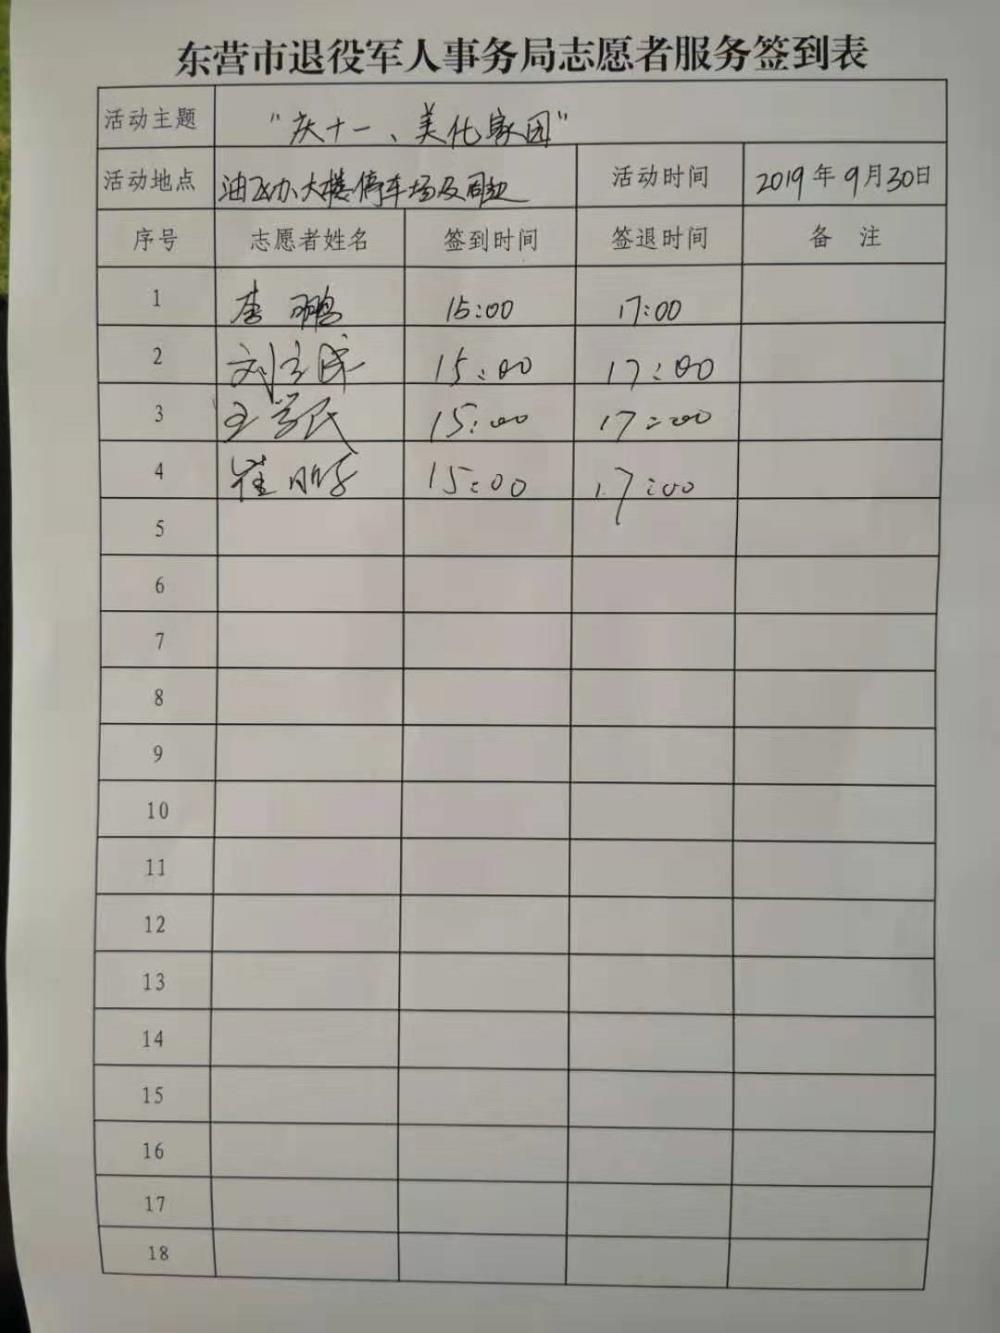 东营市退役军人事务局志愿者服务签到表
活动主题 "庆十一、美化家园"
活动地点 油区办大楼停车场及周边 活动时间 2019年9月30日
序号 志愿者姓名 签到时间 签退时间 备 注
1 李鹏 15:00 17:00
2 刘立民 15:00 17:00
3 王学民 15:00 17:00
4 崔 15:00 17:00
5
6
7
8
9
10
11
12
13
14
15
16
17
18